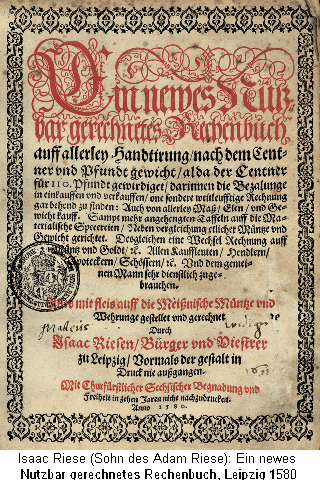 Ein newes Nutz-
bar gerechnetes Rechenbuch
auff allerley Handtirung / nach dem Cent-
ner vnd Pfundt gewicht / alda der Centner
für 110. Pfundt gewirdiget / darinnen die Bezalunge
in einkauffen vnd verkauffen / one sondere weitleufftige Rechnung
gar behend zu finden: Auch von allerley Maß / Elen / vnd Ge-
wicht kauff. Sampt mehr angehengten Taffeln auff die Ma-
terialische Specereien / Neben vergleichung etlicher Müntz vnd
Gewicht gerichtet. Desgleichen eine Wechsel Rechnung auff
Müntz vnd Goldt / ꝛc. Allen Kauffleuten / Hendlern /
Apoteckern / Schössern / ꝛc. Vnd dem gemei-
nen Mann sehr dienstlich zuge-
brauchen.
Und mit fleis auff die Meißnische Müntze vnd
Wehrunge gestellet vnd gerechnet
Durch
Isaac Riesen / Bürger vnd Visierer
zu Leipzig / Vormals der gestalt in
Druck nie außgangen.
Mit Churfürstlicher Sechsischer Begnadung vnd
Freiheit in zehen Jaren nicht nachzudrucken.
Anno 1580.
Isaac Riese (Sohn des Adam Riese): Ein newes
Nutzbar gerechnetes Rechenbuch, Leipzig 1580